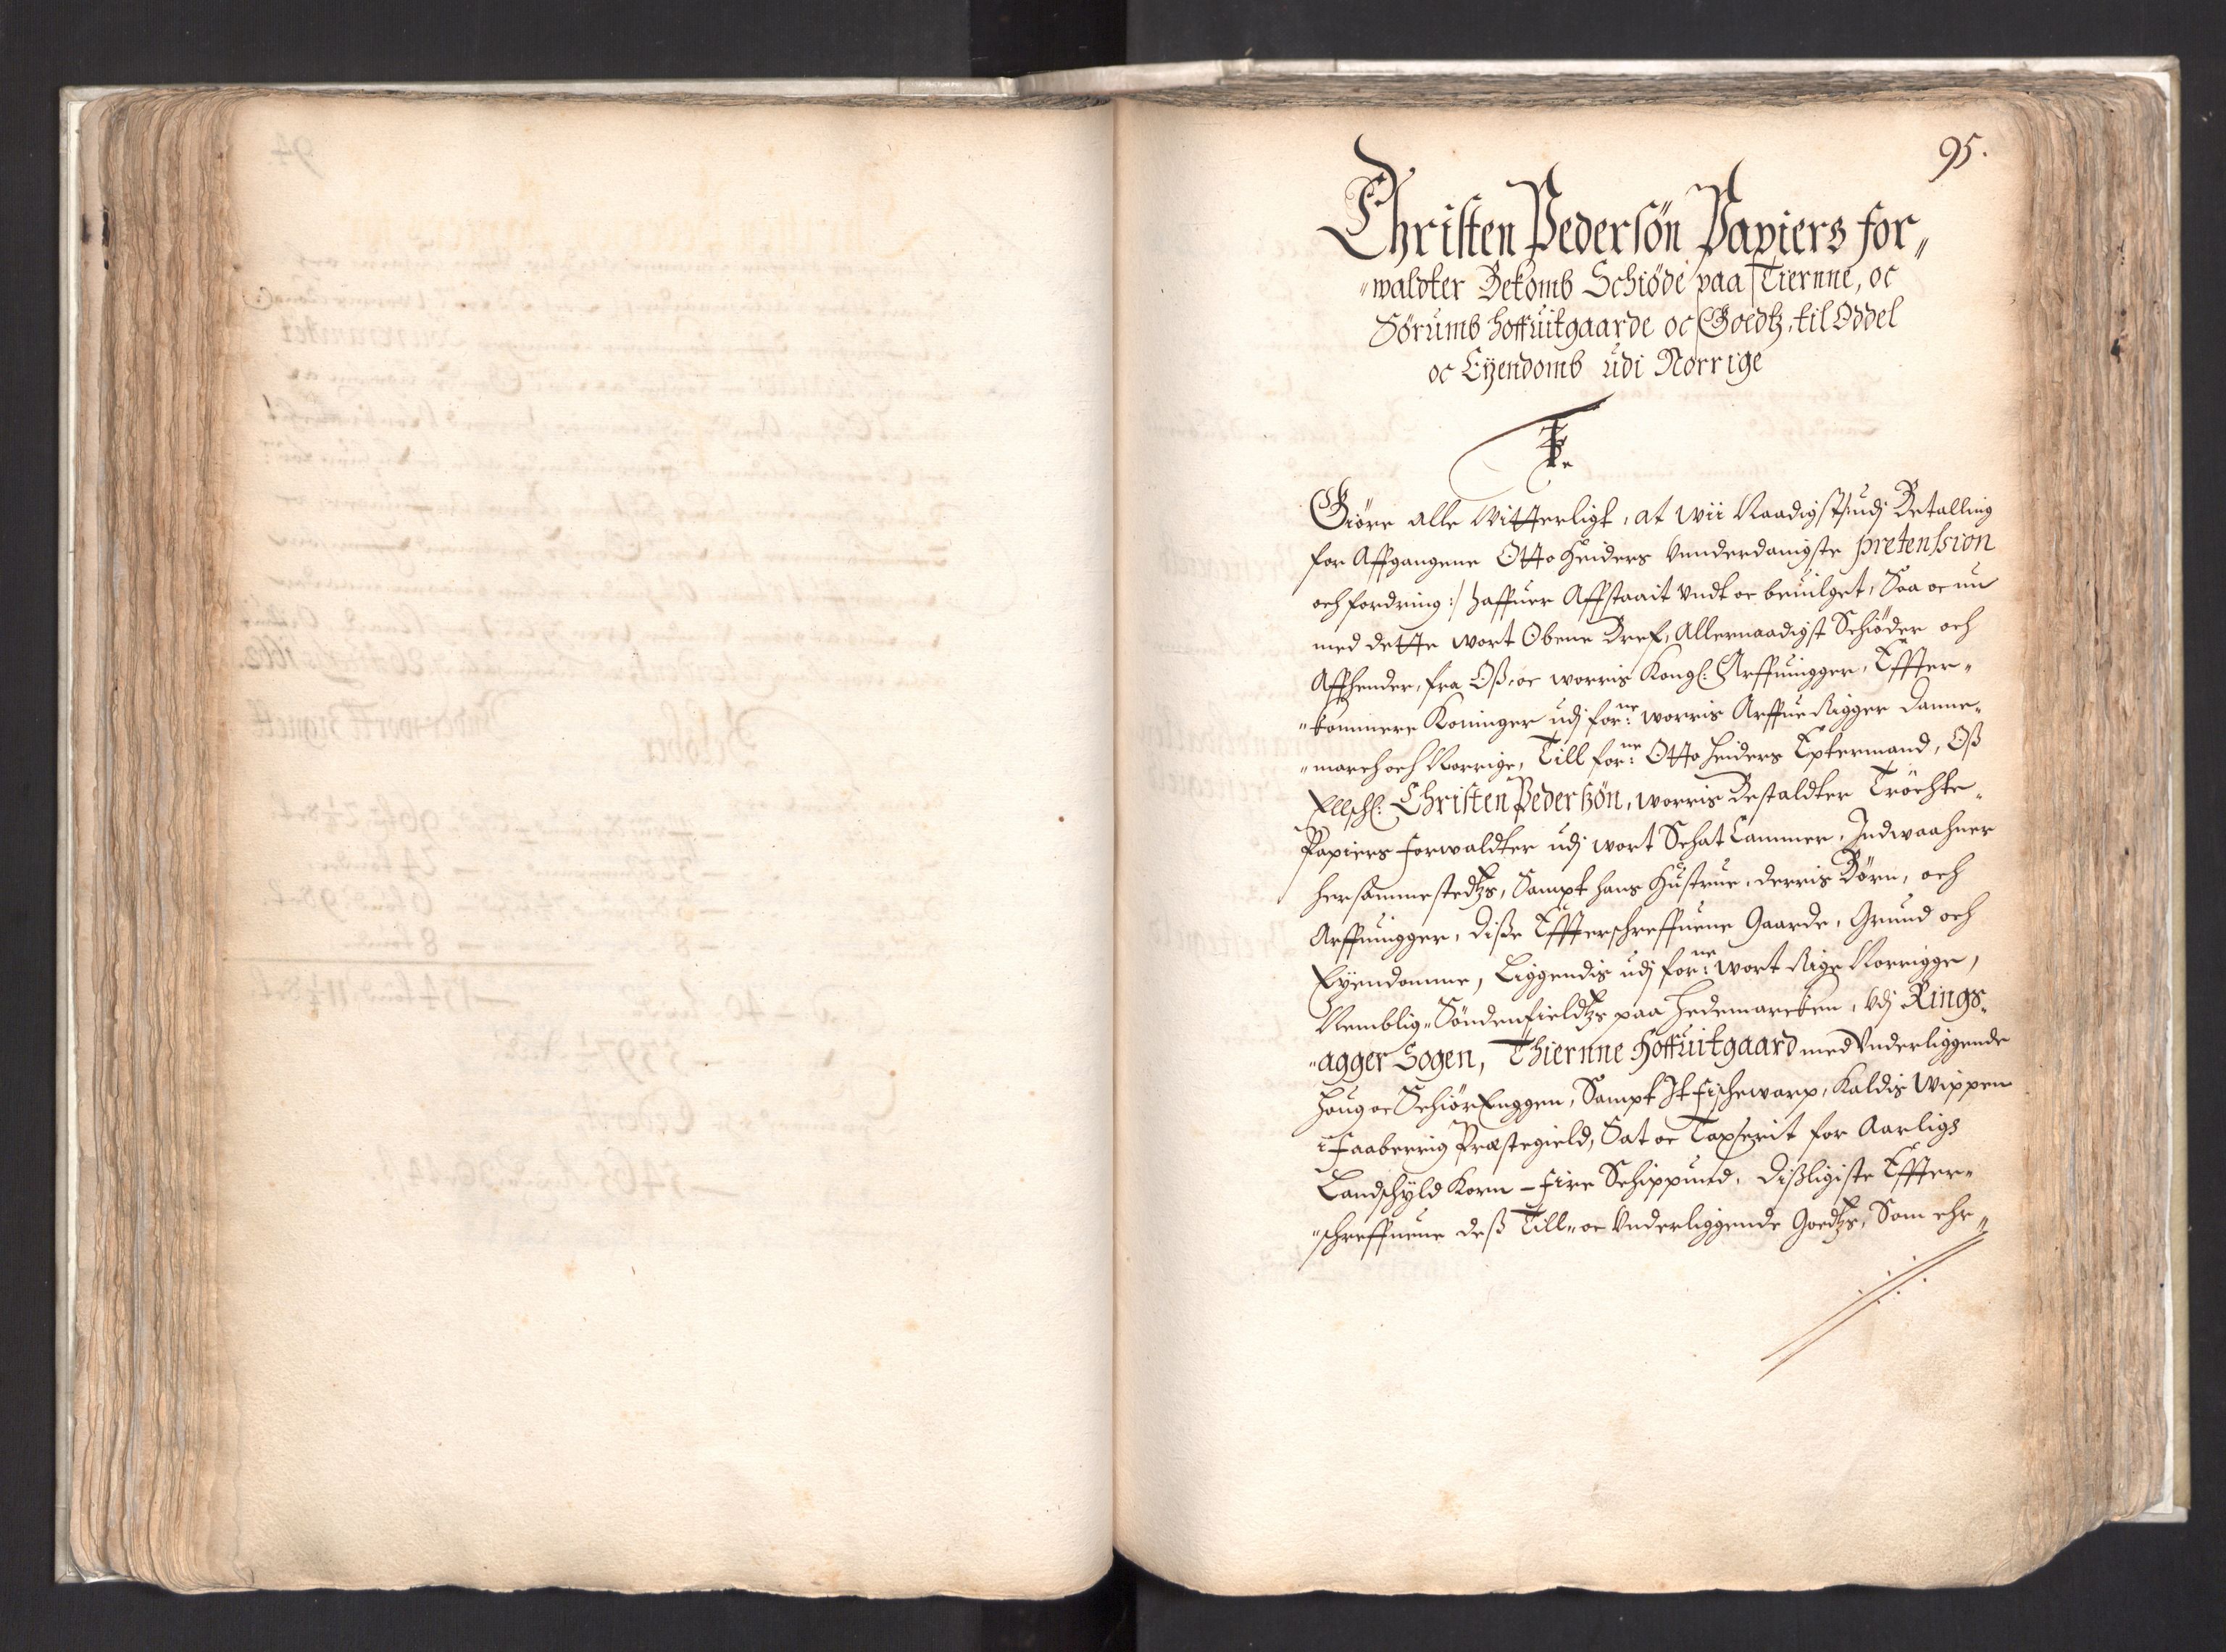 95.
Christen Pedersøn Papiers for„
„waldter Bekomb Schiøde paa Tiernne, oc
Sørumb hoffuitgaarde oc Goedtz, til Oddel
oc Eyendomb udi Norrige
Giøre alle Witterligt, at wii Naadigst /: udj Betalling
for Affgangene Otto Heiders Vnnderdanigste pretenssion
och fordring :/ haffuer Affstaait Undt oc beuilget, Saa oc nu
med dette wort Obene Bref, Allernaadigst Schiøder och
Affhender, fra Oß oc worris Kongl: Arffuingger, Effter„
„kommere Koninger udj forne: worris Arffue Rigger Danne„
„march och Norrige, Till forne: Otto Heiders Eptermand, Oß
Ellschl: Christen Pedersøn, worris Bestaldter Tröchte„
Papiers forwaldter udj wort Schat Cammer, Indwaahner
hersammestedtzs, Sampt hans Hustrue, derris Børn, och
Arffuingger, diße Effterschreffuene Gaarde, Grund och
Eyendomme, Liggendis udj forne: wort Rige Norrigge,
Nemblig„ Søndenfieldtzs paa Hedemareken, Udj Rings„
„agger Sogen, Thiernne Hoffuitgaard med Underliggende
Houg oc Schiör Enggen, Sampt It fischewarp, Kaldis Wippen
i Faaberrig Præstegield, Sat oc Taxserit for Aarligs
Landschyld Korn – fire Schippund, Dißligiste Effter„
„schreffuene deß Till„ oc Underliggende Goedtzs, Som ehr„